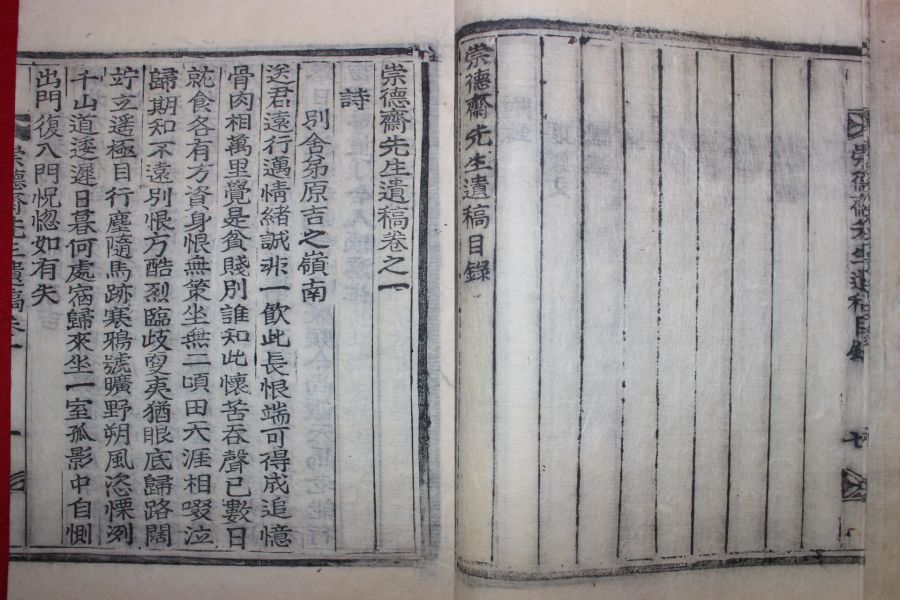 崇德齋先生遺稿目錄
崇德齋先生遺稿目錄
崇德齋先生遺稿卷之一
詩
別舍弟原吉之嶺南
送君遠行邁情緒誠非一此長恨端可得成追憶
骨肉相萬里覺是貧賤別誰知此懷苦吞聲已數日
就食各有方資身恨無策坐無二頃田天涯相啜泣
歸期知不遠別恨方酷烈臨歧夷猶眼底歸路闊
竚立遥極目行塵隨馬跡寒鴉號曠野朔風恣慄冽
千山道逶遲日暮何處宿歸來坐一室孤影中自惻
出門復入門怳惚如有失
崇德齋先生遺稿卷一
一